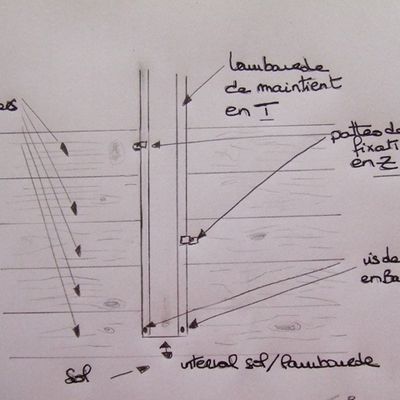 lambourde
de maintient
en T
pattes de
fixati
en Z
vis de
en Ba
interval sol/lambourde
Sol